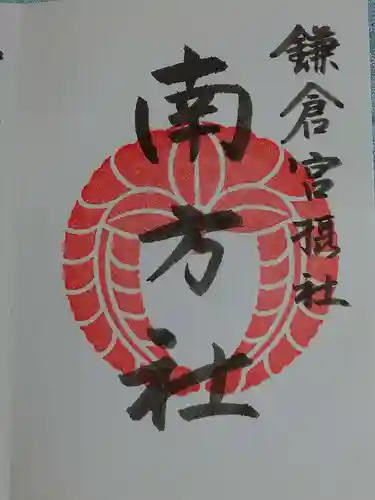 鎌倉宮摂社
南方社